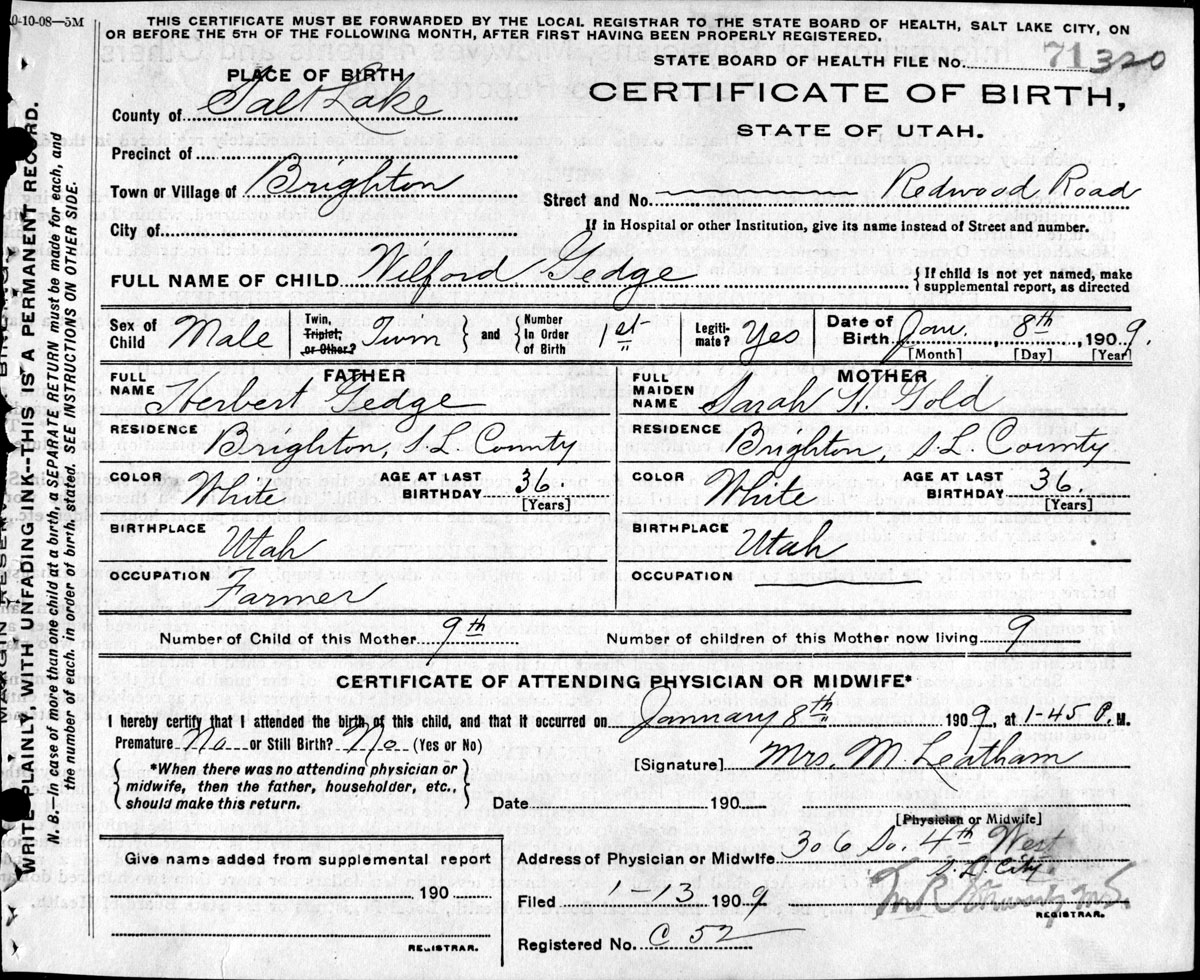 0-10-08—5M
THIS CERTIFICATE MUST BE FORWARDED BY THE LOCAL REGISTRAR TO THE STATE BOARD OF HEALTH, SALT LAKE CITY, ON
OR BEFORE THE 5TH OF THE FOLLOWING MONTH, AFTER FIRST HAVING BEEN PROPERLY REGISTERED.
STATE BOARD OF HEALTH FILE No. 71320
PLACE OF BIRTH
CERTIFICATE OF BIRTH,
STATE OF UTAH.
County of Salt Lake
Precinct of
Town or Village of Brighton
Street and No. Redwood Road
City of
If in Hospital or other Institution, give its name instead of Street and number.
FULL NAME OF CHILD Wilford Gedge
{If child is not yet named, make
supplemental report, as directed
Sex of Child Male
Twin, Triplet, or Other? Twin } and { Number In Order of Birth 1st
Legiti-mate? Yes
Date of Birth Jan. 8th, 1909.
[Month] [Day] [Year]
FATHER
FULL NAME Herbert Gedge
RESIDENCE Brighton, S.L. County
COLOR White
AGE AT LAST BIRTHDAY 36
[Years]
BIRTHPLACE Utah
OCCUPATION Farmer
MOTHER
FULL MAIDEN NAME Sarah N. Gold
RESIDENCE Brighton, S.L. County
COLOR White
AGE AT LAST BIRTHDAY 36.
[Years]
BIRTHPLACE Utah
OCCUPATION
Number of Child of this Mother 9th
Number of children of this Mother now living 9
CERTIFICATE OF ATTENDING PHYSICIAN OR MIDWIFE*
I hereby certify that I attended the birth of this child, and that it occurred on January 8th 1909, at 1-45 P. M.
Premature No or Still Birth? No (Yes or No)
[Signature] Mrs. M. Leatham
{ *When there was no attending physician or
midwife, then the father, householder, etc.,
should make this return. }
Date 190
[Physician or Midwife]
Give name added from supplemental report
190
REGISTRAR.
Address of Physician or Midwife 306 So. 4th West
S.L. City
Filed 1-13 1909
REGISTRAR.
Registered No. C 52
MARGIN RESERVED
WRITE PLAINLY, WITH UNFADING INK--THIS IS A PERMANENT RECORD.
N. B.—In case of more than one child at a birth, a SEPARATE RETURN must be made for each, and
the number of each, in order of birth, stated. SEE INSTRUCTIONS ON OTHER SIDE.